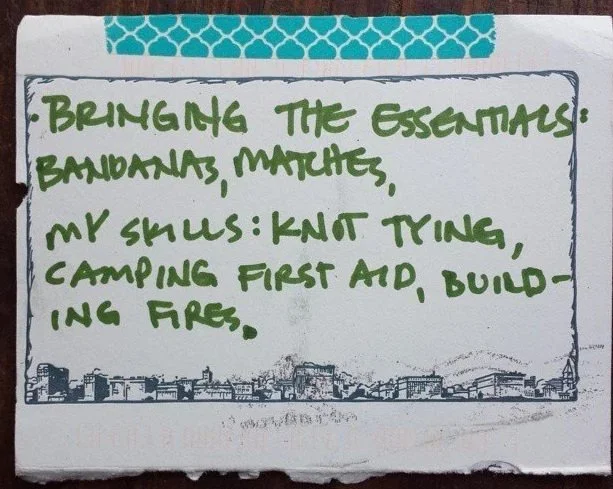 • BRINGING THE ESSENTIALS:
BANDANAS, MATCHES,
MY SKILLS: KNOT TYING,
CAMPING FIRST AID, BUILD-
ING FIRES.